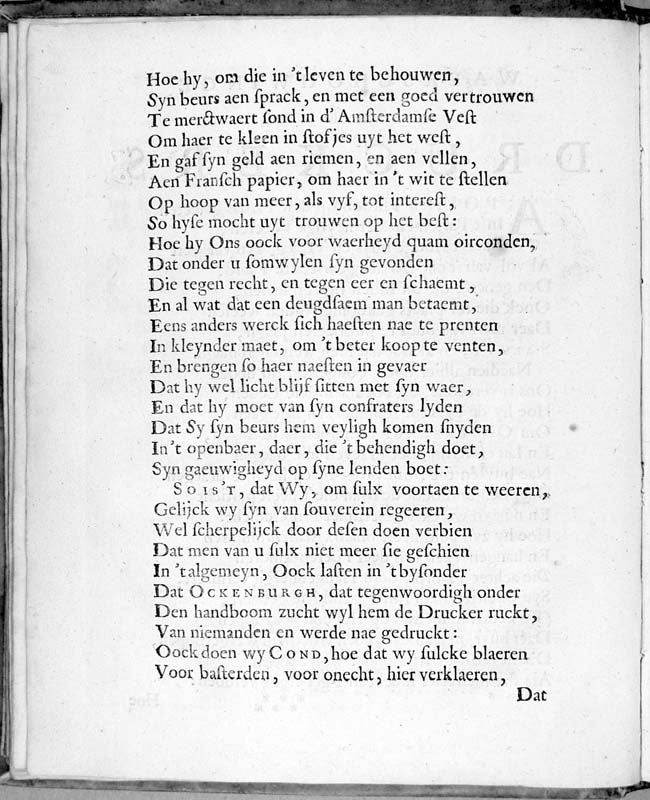 Hoe hy, om die in 't leven te behouwen,
Syn beurs aen ſprack, en met een goed vertrouwen
Te merctwaert ſond in d' Amſterdamſe Veſt
Om haer te kleen in ſtofjes uyt het weſt,
En gaf ſyn geld aen riemen, en aen vellen,
Aen Franſch papier, om haer in 't wit te ſtellen
Op hoop van meer, als vyf, tot intereſt,
So hyſe mocht uyt trouwen op het beſt:
Hoe hy Ons oock voor waerheyd quam oirconden,
Dat onder u ſomwylen ſyn gevonden
Die tegen recht, en tegen eer en ſchaemt,
En al wat dat een deugdſaem man betaemt,
Eens anders werck ſich haeſten nae te prenten
In kleynder maet, om 't beter koop te venten,
En brengen ſo haer naeſten in gevaer
Dat hy wel licht blijf ſitten met ſyn waer,
En dat hy moet van ſyn confraters lyden
Dat Sy ſyn beurs hem veyligh komen ſnyden
In 't openbaer, daer, die 't behendigh doet,
Syn gaeuwigheyd op ſyne lenden boet:
SO IS'T, dat Wy, om ſulx voortaen te weeren,
Gelijck wy ſyn van ſouverein regeeren,
Wel ſcherpelijck door deſen doen verbien
Dat men van u ſulx niet meer ſie geſchien
In 't algemeyn, Oock laſten in 't byſonder
Dat OCKENBURGH, dat tegenwoordigh onder
Den handboom zucht wyl hem de Drucker ruckt,
Van niemanden en werde nae gedruckt:
Oock doen wy COND, hoe dat wy ſulcke blaeren
Voor baſterden, voor onecht, hier verklaeren,
Dat